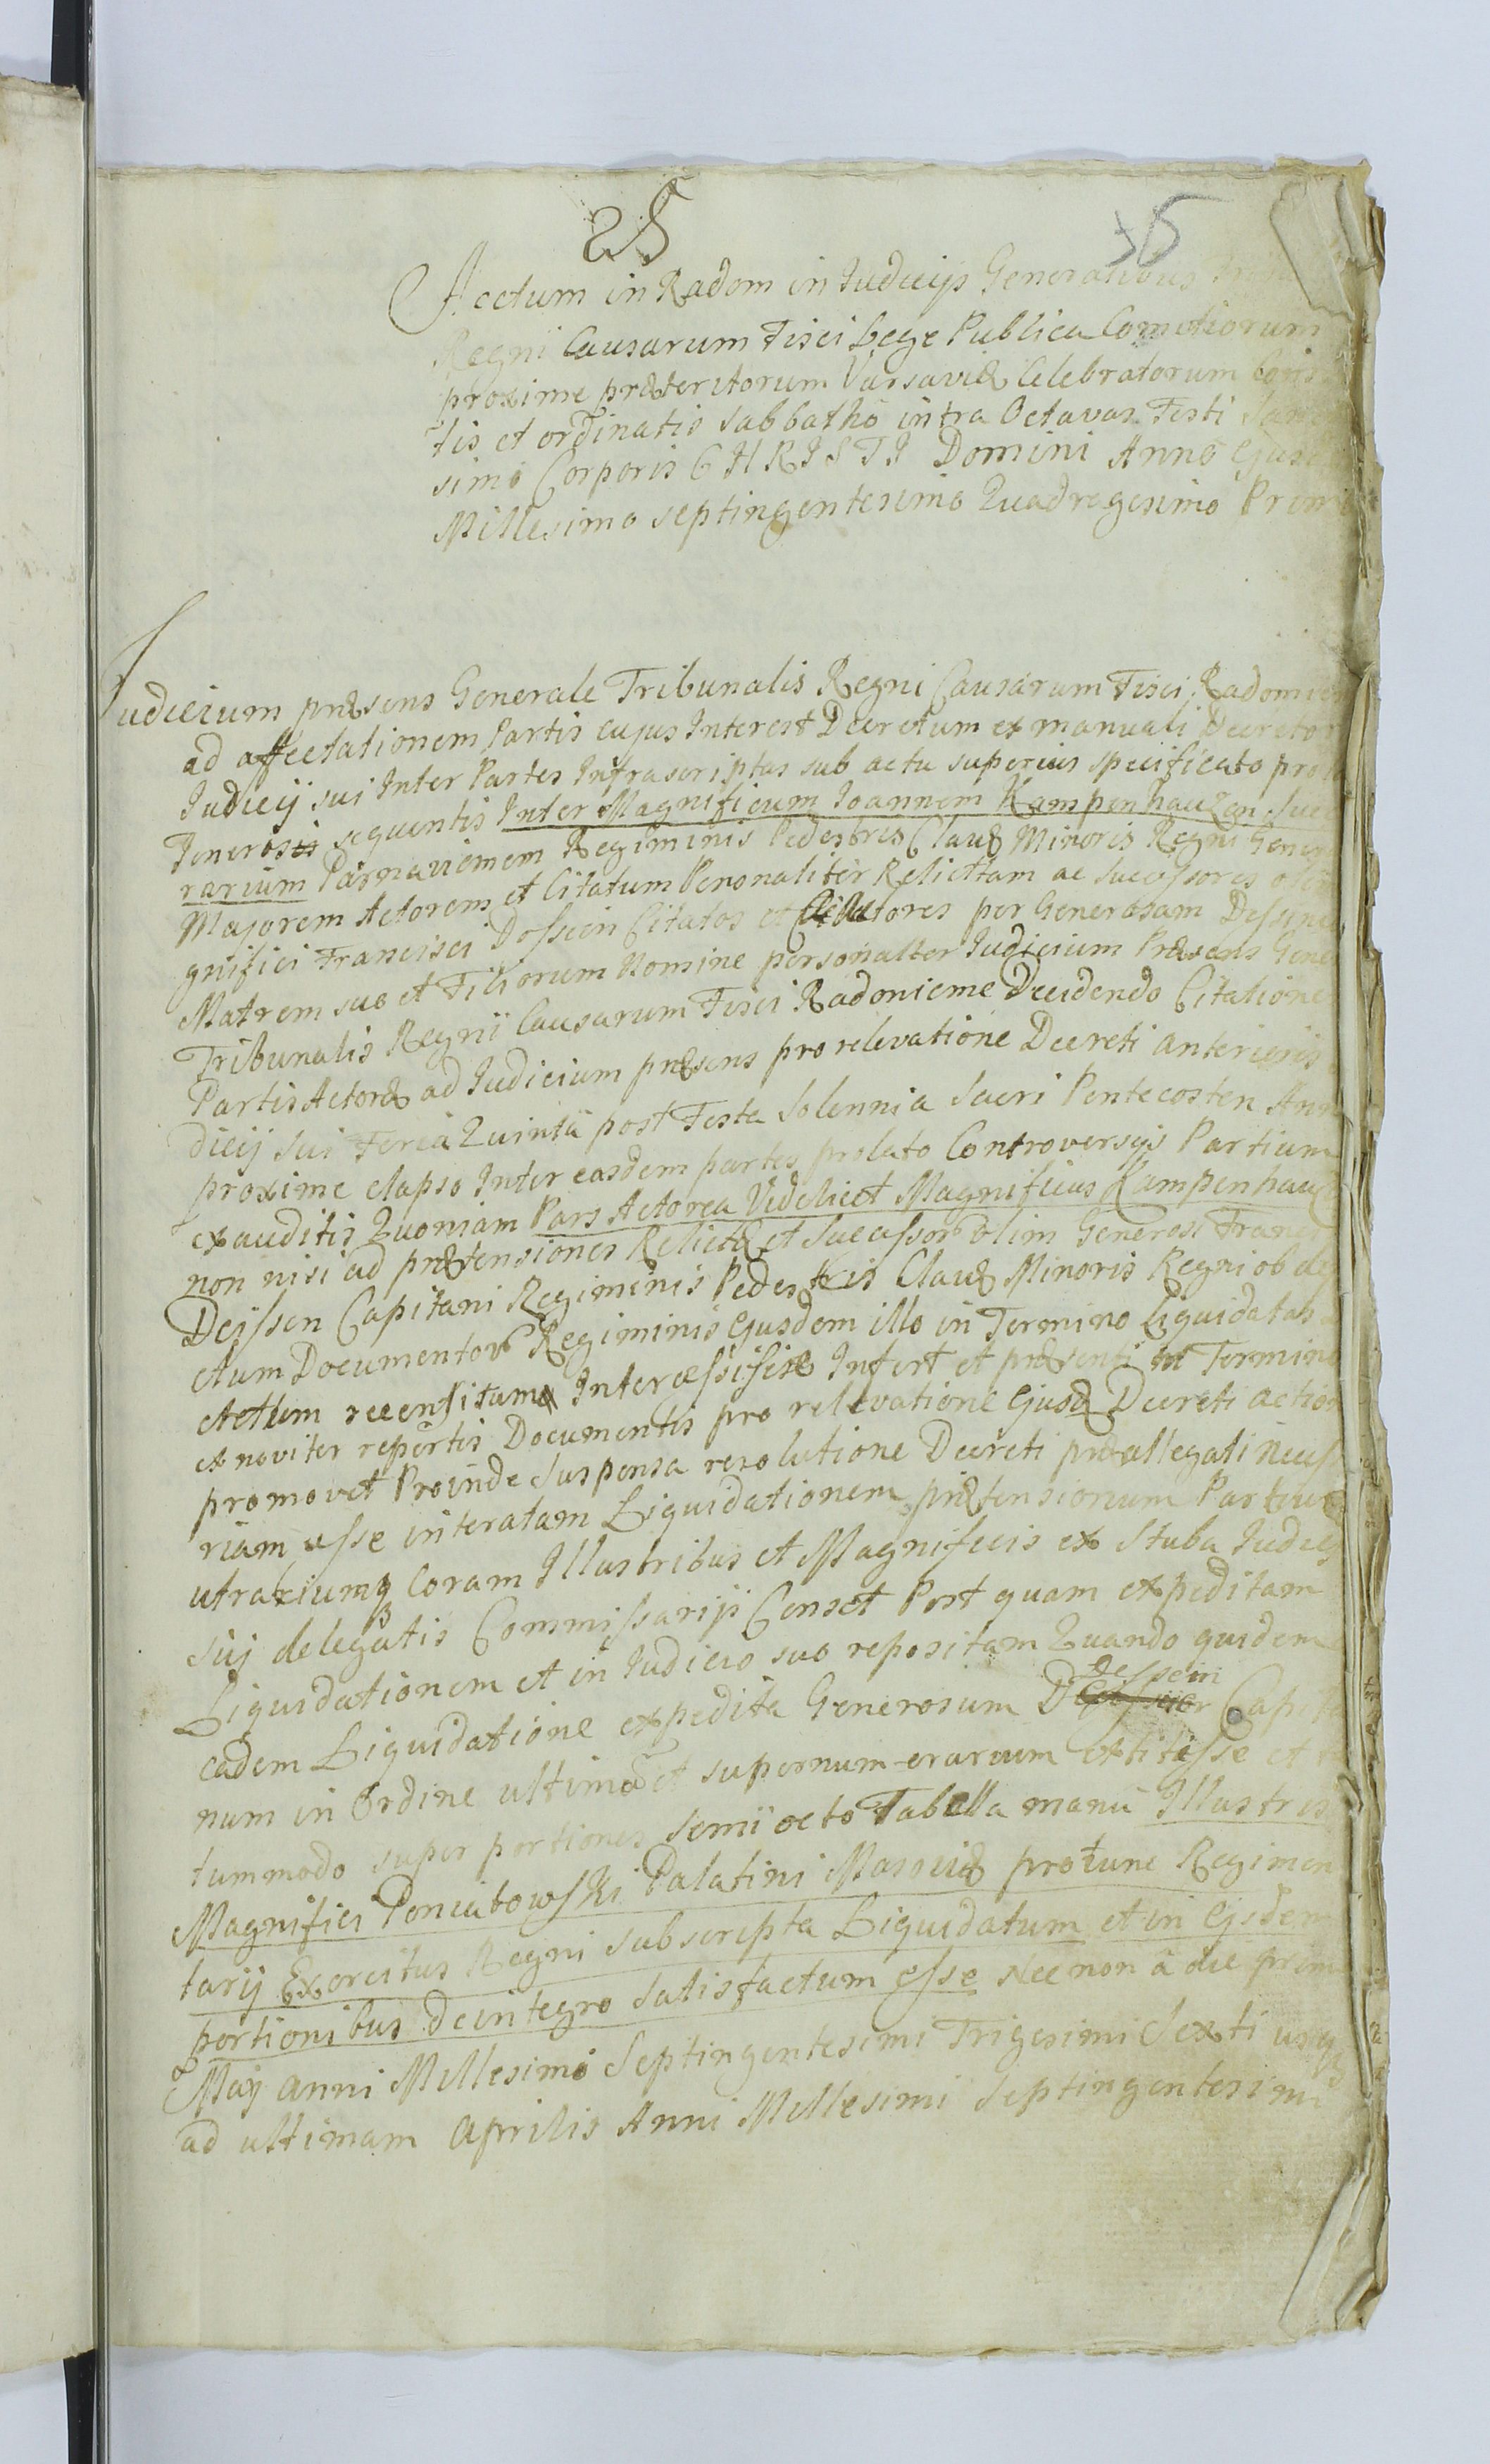 25
35
Actum in Radom in Judicijs Generalibus
Regni Causarum Fisci Lege Publica Comitiorum
proxime præteritorum Varsaviæ Celebratorum
tis et ordinatis Sabbathô intra Octavas Festi San
simi Corporis CHRISTI Domini Annô Ejusd
Millesimo septingentesimo Quadregesimo Primo
Judicium præsens Generale Tribunalis Regni Causarum Fisci Radomien
ad affectationem Partis cujus Interest Decretum ex manuali Decretor
Judicij sui Inter Partes Infrascriptas sub actu superius specificato pro
Tenoris sequentis Inter Magnificum Joannem Kampenhauzen
rarium Parnaviemem Regiminis Pedestres Clauæ Minoris Regni Gene
Majorem Actorem et Citatum Personaliter Relictam ac Successores olim
gnifici Francisci Dossein Citatos et Actores per Generosam Dessein
Matrem suo et Filiorum Nomine personalter Judicium Præsens Gene
Tribunalis Regni Causarum Fisci Radomieme Decidendo Citatione
Partis Actoræ ad Judicium præsens pro relevatione Decreti anterioris
dicij sui Feria Quinta post Festa Solennia Sacri Pentecosten Ann
proxime elapso Inter easdem partes prolato Controversijs Partium
exauditis Quoniam Pars Actorea Videlicet Magnificus Kampenhauz
non nisi ad prætensiones Relictæ et Successor olim Generosi Franc
Deissen Capitani Regiminis Pedestris Clauæ Minoris Regni ob de
ctum Documentor Regiminis Ejusdem illo in Termino liquidatas
Actum recensitam Intercessisse Infert et præsenti in Termino
ex noviter repertis Documentis pro relevatione Ejusd Decreti action
promovet Proinde Suspensa resolutione Decreti præallegati necess
riam esse interatam Liquidationem prætensionum Partium
utrariumq Coram Illustribus et Magnificis ex Stuba Judicij
sui delegatis Commissarijs Censet Post quam expeditam
Liquidationem et in Judicio suo repositam Quando quidem
Dessein
eadem Liquidatione expedita Generosum Capita
num in Ordine ultimo et supernum-erarium extitisse et
tummodo super portiones semi octo Tabella manu Illustris
Magnifici Poniatowski Palatini Masoviæ protunc Regimen
tarij Exercitus Regni subscripta Liquidatum et in Ejsdem
portionibus deintegro satisfactum esse Nec non â die prima
Maij anni Millesimi Septingentesimi Trigesimi Sexti usq
ad ultimam Aprilis Anni Millesimi Septingentesimi